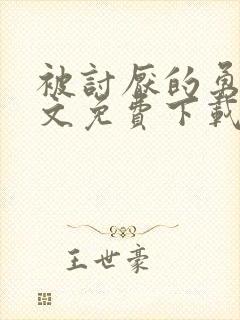 被討厭的勇
文免費下載
王世豪